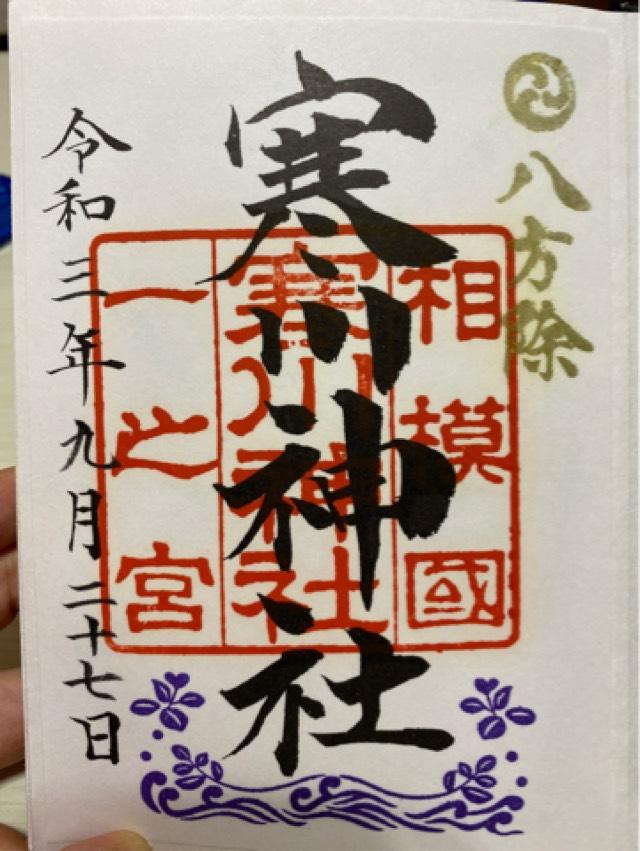 八方除
相模國
寒川神社
寒川神社
一之宮
令和三年九月二十七日